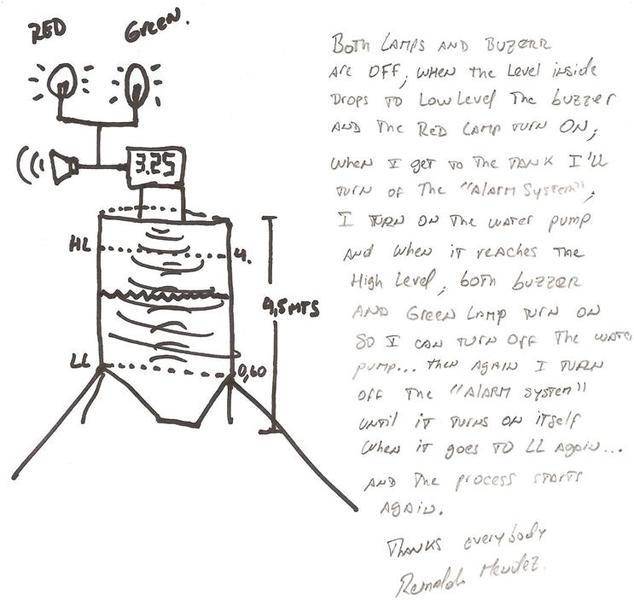 RED
GREEN.
3.25
HL
4.
4,5 MTS
LL
0,60
BOTH LAMPS AND BUZERR
ARE OFF, WHEN THE LEVEL INSIDE
DROPS TO LOW LEVEL THE BUZZER
AND THE RED LAMP TURN ON,
WHEN I GET TO THE TANK I'LL
TURN OF THE "ALARM SYSTEM",
I TURN ON THE WATER PUMP
AND WHEN IT REACHES THE
HIGH LEVEL, BOTH BUZZER
AND GREEN LAMP TURN ON
SO I CAN TURN OFF THE WATER
PUMP... THEN AGAIN I TURN
OFF THE "ALARM SYSTEM"
UNTIL IT TURNS ON ITSELF
WHEN IT GOES TO LL AGAIN...
AND THE PROCESS STARTS
AGAIN.
THANKS EVERYBODY